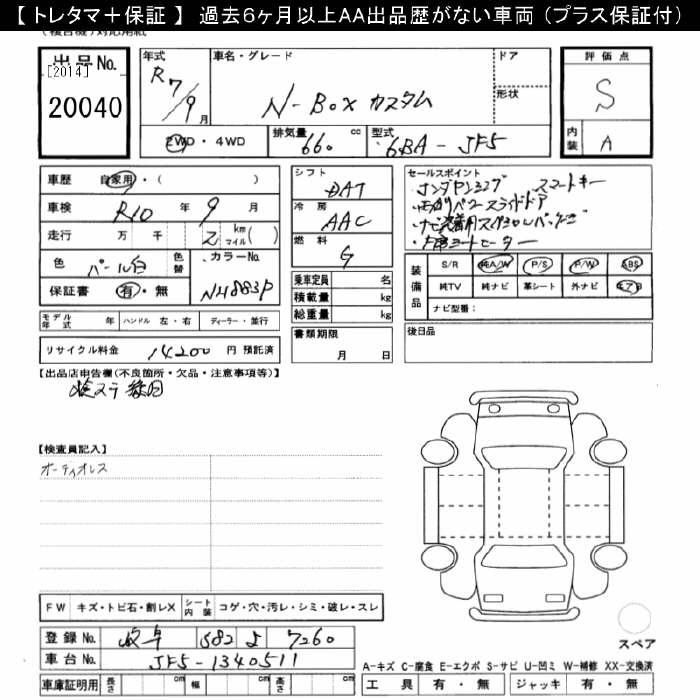 【 トレタマ＋保証 】 過去6ヶ月以上AA出品歴がない車両 (プラス保証付)
出品No.
[2014]
20040
年式 R7/9月
車名・グレード N-Boxカスタム
ドア
形状
評価点
S
内装 A
2WD・4WD
排気量 660 cc
型式 6BA-JF5
車歴 自家用・( )
車検 R10年 9月
走行 万 千 2 km マイル( )
色 パール白 色替 カラーNo. NH883P
保証書 有・無
シフト DAT
冷房 AAC
燃料 G
乗車定員 名
積載量 kg
総重量 kg
書類期限
月 日
セールスポイント
・ホンダセンシング スマートキー
・両側パワースライドドア
・前席シートヒーター
装備品 S/R 純A/W P/S P/W ABS
純TV 純ナビ 革シート 外ナビ エアB
ナビ型番:
後日品
モデル年式 年 ハンドル 左・右 ディーラー・並行
リサイクル料金 14200 円 預託済
【出品店申告欄(不良箇所・欠品・注意事項等)】
【検査員記入】
オーディオレス
FW キズ・トビ石・割レX シート内装 コゲ・穴・汚レ・シミ・破レ・スレ
登録No. 岐阜 582 よ 7260
車台No. JF5-1340511
車庫証明用 長さ cm 幅 cm 高さ cm
スペア
A-キズ C-腐食 E-エクボ S-サビ U-凹ミ W-補修 XX-交換済
工具 有・無 ジャッキ 有・無